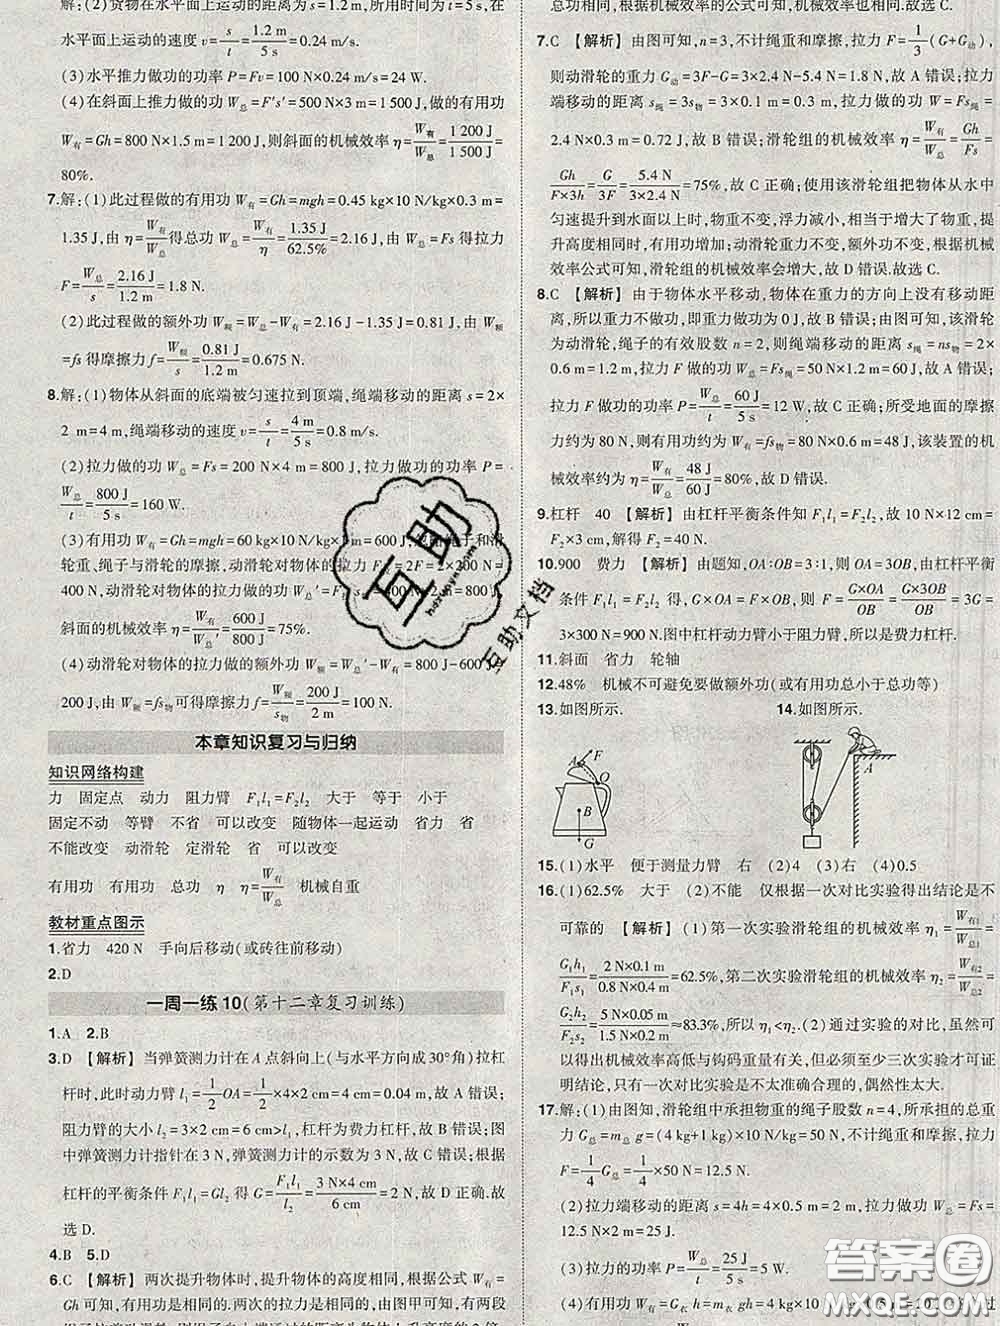 解:(2)货物在水平面上运动的距离为1.2 m,所用时间为5 s,在
水平面上运动的速度 v=s/t=1.2 m/5 s=0.24 m/s.
(3)水平推力做功的功率 P=Fv=100 N×0.24 m/s=24 W.
(4)在斜面上推力做的功 W总=F's'=500 N×3 m=1 500 J,做的有用功
W有=Gh=800 N×1.5 m=1 200 J,则斜面的机械效率 η=W有/W总=1 200 J/1 500 J=
80%.
7.解:(1)此过程做的有用功 W有=Gh=mgh=0.45 kg×10 N/kg×0.3 m=
1.35 J,由 η=W有/W总得总功 W总=W有/η=1.35 J/62.5%=2.16 J,由 W总=Fs 得拉力
F=W总/s=2.16 J/1.2 m=1.8 N.
(2)此过程做的额外功 W额=W总-W有=2.16 J-1.35 J=0.81 J,由 W额
=fs 得摩擦力 f=W额/s=0.81 J/1.2 m=0.675 N.
8.解:(1)物体从斜面的底端被匀速拉到顶端,绳端移动的距离 s=2×
2 m=4 m,绳端移动的速度 v=s/t=4 m/5 s=0.8 m/s.
(2)拉力做的功 W总=Fs=200 N×4 m=800 J,拉力做功的功率 P=
W总/t=800 J/5 s=160 W.
(3)有用功 W有=Gh=mgh=60 kg×10 N/kg×1 m=600 J,绳和滑
轮重、绳子与滑轮的摩擦,动滑轮对物体的拉力 F=2×200 N=
400 N,动滑轮对物体的拉力做的功 =400 N×2 m=800 J,
斜面的机械效率 η=W有/W总'=600 J/800 J=75%.
(4)动滑轮对物体的拉力做的额外功 W额=W总'-W有=800 J-600 J=
200 J,由 W额=fs物 得摩擦力 f=W额/s物=200 J/2 m=100 N.
本章知识复习与归纳
知识网络构建
力 固定点 动力 阻力臂 F1l1=F2l2 大于 等于 小于
固定不动 等臂 不省 可以改变 随物体一起运动 省力 省
不能改变 动滑轮 定滑轮 省 可以改变
有用功 有用功 总功 η=W有/W总 机械自重
教材重点图示
1.省力 420 N 手向后移动(或砖往前移动)
2.D
一周一练10(第十二章复习训练)
1.A 2.B
3.D 【解析】当弹簧测力计在 A 点斜向上(与水平方向成30°角)拉杠
杆时,此时动力臂 l1=1/2 OA=1/2×4×2 cm=4 cm=0.04 m,故 A 错误;
阻力臂的大小 l2=3×2 cm=6 cm>l1,杠杆为费力杠杆,故 B 错误;图
中弹簧测力计指针在 3 N,弹簧测力计的示数为 3 N,故 C 错误;根据
杠杆的平衡条件 F1l1=Gl2 得 G=F1l1/l2=3 N×4 cm/6 cm=2 N,故 D 正确.故
选 D.
4.B 5.D
6.C 【解析】两次提升物体时,提升物体的高度相同,根据公式 W有=
Gh 可知有用功是相同的.两次的拉力是相同的,由图甲可知,有两段
总功相同,根据机械效率的公式可知,机械效率也相同.故选 C.
7.C 【解析】由图可知,n=3,不计绳重和摩擦,拉力 F=1/3(G+G动),
则动滑轮的重力 G动=3F-G=3×2.4 N-5.4 N=1.8 N,故 A 错误;拉力
端移动的距离 s绳=3s物=3×0.1 m=0.3 m,拉力做的功 W=Fs绳=
2.4 N×0.3 m=0.72 J,故 B 错误;滑轮组的机械效率 η=W有/W总=Gh/Fs=
Gh/F×3h=G/3F=5.4 N/3×2.4 N=75%,故 C 正确;使用该滑轮组把物体从水中
匀速提升到水面以上时,物重不变,浮力减小,相当于增大了物重,提
升高度相同时,有用功增加;动滑轮重力不变,额外功不变,根据机械
效率公式可知,滑轮组的机械效率会增大,故 D 错误.故选 C.
8.C 【解析】由于物体水平移动,物体在重力的方向上没有移动距
离,所以重力不做功,即重力做功为 0 J,故 B 错误;由图可知,该滑轮
为动滑轮,绳子的有效股数 n=2,则绳端移动的距离 s绳=ns物=2×
0.6 m=1.2 m,拉力 F 做的功 W总=Fs绳=50 N×1.2 m=60 J,故 A 错误;
拉力 F 做功的功率 P=W总/t=60 J/5 s=12 W,故 C 正确;所受地面的摩擦
力约为 80 N,则有用功约为 W有=fs物=80 N×0.6 m=48 J,该装置的机
械效率约为 η=W有/W总=48 J/60 J=80%,故 D 错误.
9.杠杆 40 【解析】由杠杆平衡条件知 F1l1=F2l2,故 10 N×12 cm=
F2×3 cm,解得 F2=40 N.
10.900 费力 【解析】由题知,OA:OB=3:1,则 OA=3OB,由杠杆平衡
条件 F1l1=F2l2 得,G×OA=F×OB,则 F=G×OA/OB=G×3OB/OB=3G=
3×300 N=900 N.图中杠杆动力臂小于阻力臂,所以是费力杠杆.
11.斜面 省力 轮轴
12.48% 机械不可避免要做额外功(或有用功总小于总功等)
13.如图所示. 14.如图所示.
A F O B G
A
15.(1)水平 便于测量力臂 右 (2)4 (3)右 (4)0.5
16.(1)62.5% 大于 (2)不能 仅根据一次对比实验得出结论是不
可靠的 【解析】(1)第一次实验滑轮组的机械效率 η1=W有1/W总1=
G1h1/F1s1=2 N×0.1 m/0.8 N×0.4 m=62.5%,第二次实验滑轮组的机械效率 η2=W有2/W总2=
G2h2/F2s2=5 N×0.05 m/1.5 N×0.2 m≈83.3%,所以 η1<η2.(2)通过实验的对比,虽然可
以得出机械效率高低与钩码重量有关,但必须至少三次实验才可证
明结论,只有一次对比实验是不太准确合理的,偶然性太大.
17.解:(1)由图知,滑轮组中承担物重的绳子股数 n=4,所承担的总重
力 G总=m总g=(4 kg+1 kg)×10 N/kg=50 N,不计绳重和摩擦,拉力
F=1/4 G总=1/4×50 N=12.5 N.
(2)拉力端移动的距离 s=4h=4×0.5 m=2 m,拉力做功 W总=Fs=
12.5 N×2 m=25 J.
(3)拉力做功的功率 P=W总/t=25 J/5 s=5 W.
(4)有用功 W有=G衣h=m衣gh=
互助
hdzuoye.com
互助文档
答案圈
MXQE.COM